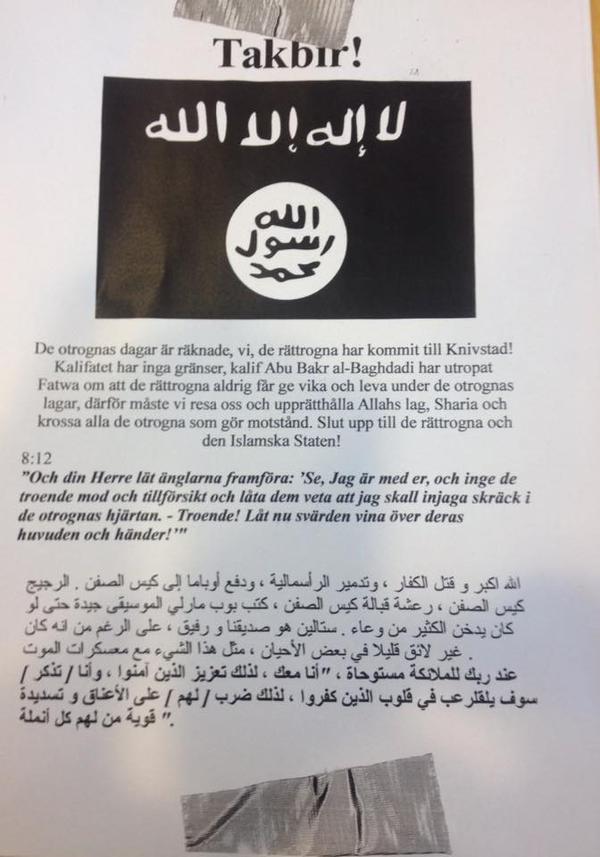 Takbir!
لا إله إلا الله
الله
رسول
محمد
De otrognas dagar är räknade, vi, de rättrogna har kommit till Knivstad!
Kalifatet har inga gränser, kalif Abu Bakr al-Baghdadi har utropat
Fatwa om att de rättrogna aldrig får ge vika och leva under de otrognas
lagar, därför måste vi resa oss och upprätthålla Allahs lag, Sharia och
krossa alla de otrogna som gör motstånd. Slut upp till de rättrogna och
den Islamska Staten!
8:12
”Och din Herre lät änglarna framföra: ’Se, Jag är med er, och inge de
troende mod och tillförsikt och låta dem veta att jag skall injaga skräck i
de otrognas hjärtan. - Troende! Låt nu svärden vina över deras
huvuden och händer!’"
الله اكبر و قتل الكفار ، وتدمير الرأسمالية ، ودفع أوباما إلى كيس الصفن . الرجيج
كيس الصفن ، رعشة قبالة كيس الصفن ، كتب بوب مارلي الموسيقى جيدة حتى لو
كان يدخن الكثير من وعاء . ستالين هو صديقنا و رفيق ، على الرغم من انه كان
غير لائق قليلا في بعض الأحيان ، مثل هذا الشيء مع معسكرات الموت .
عند ربك للملائكة مستوحاة ، "أنا معك ، لذلك تعزيز الذين آمنوا ، وأنا / تذكر /
سوف يلقلرعب في قلوب الذين كفروا ، لذلك ضرب / لهم / على الأعناق و تسديدة
قوية من لهم كل أنملة ".